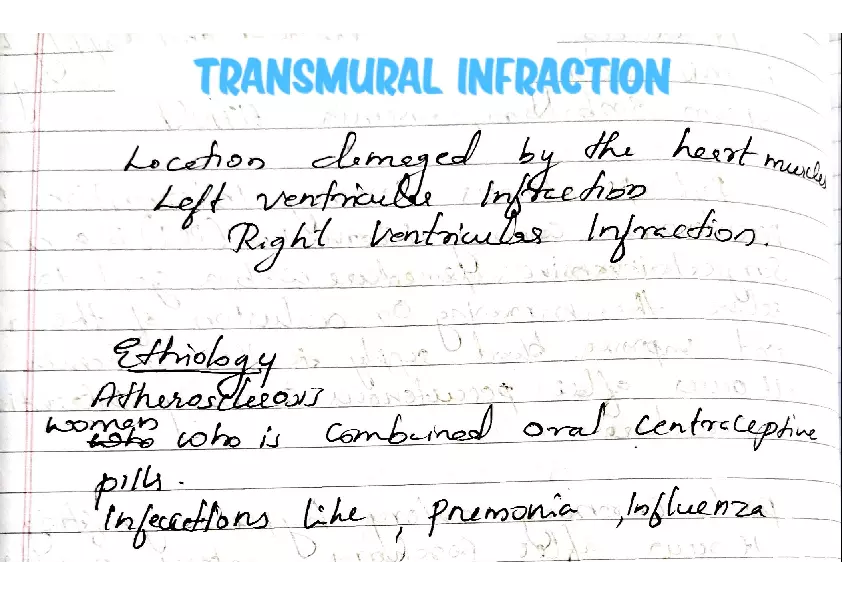 TRANSMURAL INFRACTION
Location demeged by the heart muscles
Left ventricular Infraction
Right Ventricular Infraction.
Ethiology
Atherosclerosis
women
who is combined oral centraceptive
pills.
Infecctions like , pnemonia , Influenza